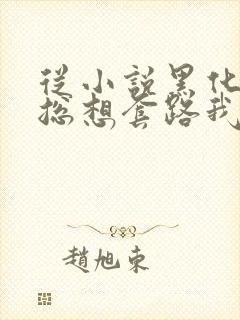 從小說黑化
總想套路我
趙旭東